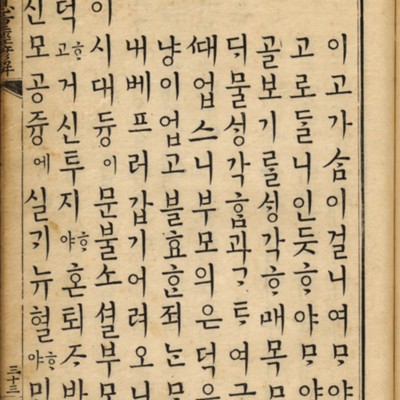 이고가슴이걸니여ᄆᆞ야
고로들니인듯ᄒᆞ야ᄆᆞ야
골보기를ᄉᆡᆼ각ᄒᆞ매목
듸물ᄉᆡᆼ각흠과ᄀᆞᄐᆞ여
ᄯᅢ업스니부모의은덕은
냥이업고블효ᄒᆞᆫ죄ᄂᆞᆫ
내베프러갑기어려오니
이시대듕이문불소셜부모
덕고ᄒᆞ거신투지ᄒᆞ야혼퇴ᄌᆞ
신모공즁에실기뉴혈ᄒᆞ야
三十三